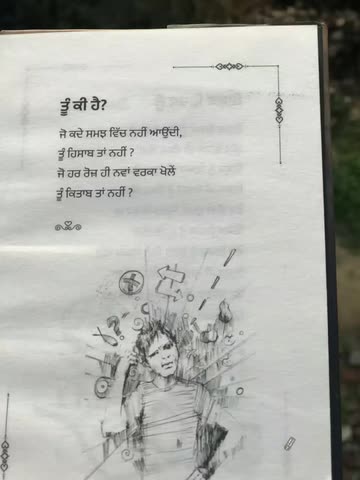 ਤੂੰ ਕੀ ਹੈ?
ਜੋ ਕਦੇ ਸਮਝ ਵਿੱਚ ਨਹੀਂ ਆਉਂਦੀ,
ਤੂੰ ਹਿਸਾਬ ਤਾਂ ਨਹੀਂ ?
ਜੋ ਹਰ ਰੋਜ਼ ਹੀ ਨਵਾਂ ਵਰਕਾ ਖੋਲੇਂ
ਤੂੰ ਕਿਤਾਬ ਤਾਂ ਨਹੀਂ ?